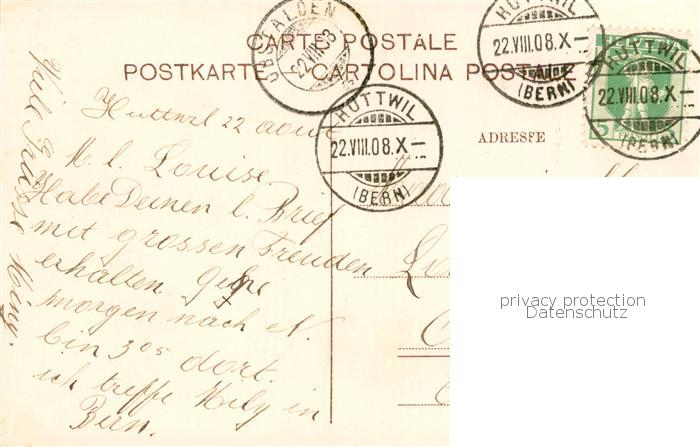 CARTE POSTALE
POSTKARTE CARTOLINA POSTALE
OBSTALDEN
22.VIII.08
HUTTWIL
22.VIII.08.X–
(BERN)
HUTTWIL
22.VIII.08.X–
(BERN)
HUTTWIL
22.VIII.08.X–
(BERN)
5
ADRESSE
Huttwil 22 août
M. l. Louise.
Habe Deinen l. Brief
mit grossen Freuden
erhalten
morgen nach N.
bin 305 dort.
ich treffe Hely in
Bern.
Viel Grüsse
privacy protection
Datenschutz